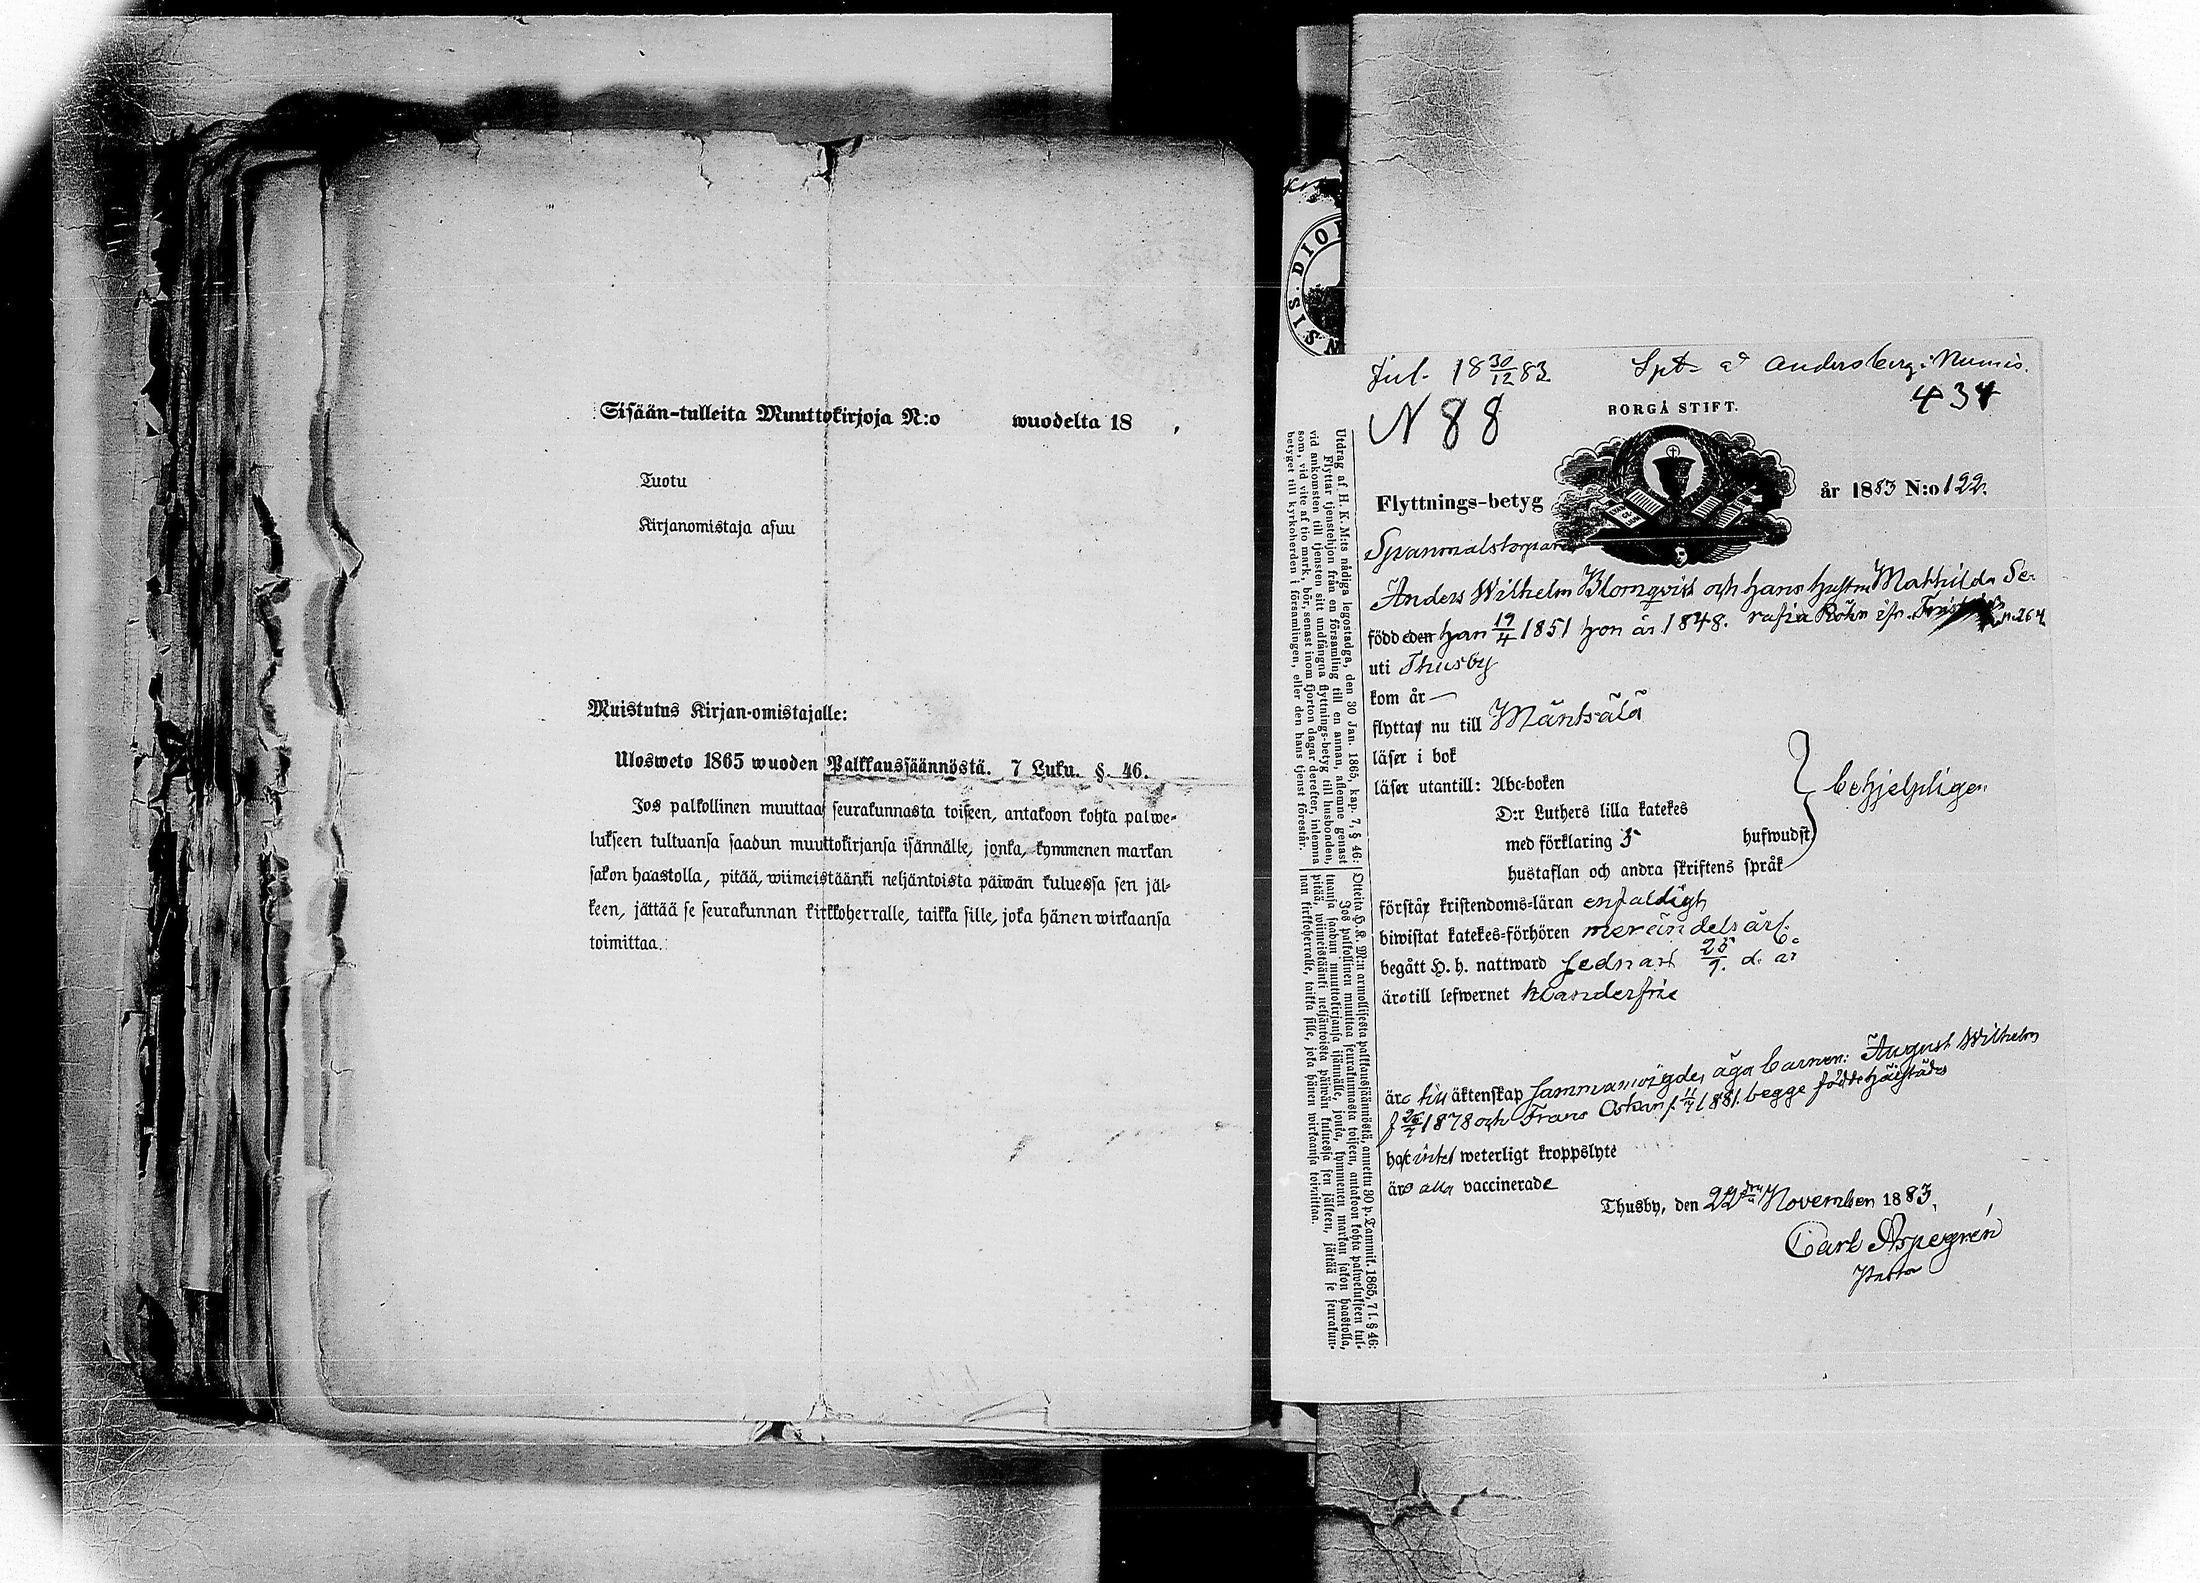 Sisään-tulleita Muuttokirjoja N:o wuodelta 18 ,
Tuotu
Kirjanomistaja asuu
Muistutus Kirjan-omistajalle:
Ulosweto 1865 wuoden Palkkaussäännöstä. 7 Luku. §. 46.
Jos palkollinen muuttaa seurakunnasta toiseen, antakoon kohta palwe-
lukseen tultuansa saadun muuttokirjansa isännälle, jonka, kymmenen markan
sakon haastolla, pitää, wiimeistäänki neljäntoista päiwän kuluessa sen jäl-
keen, jättää se seurakunnan kirkkoherralle, taikka sille, joka hänen wirkaansa
toimittaa.
SIS. DIOE
Utdrag af H. K. M:ts nådiga legostadga, den 30 Jan. 1865, kap. 7, § 46:
Flyttar tjenstehjon från en församling till en annan, aflemne genast
vid ankomsten till tjensten sitt undfångna flyttnings-betyg till husbonden,
som, vid vite af tio mark, bör, senast inom fjorton dagar derefter, inlemna
betyget till kyrkoherden i församlingen, eller den hans tjenst förestår.
Otteita H. K. M:n armollisesta palkkaussäännöstä, annettu 30 p. Tammik. 1865, 7 l. § 46:
Jos palkollinen muuttaa seurakunnasta toiseen, antakoon kohta palwelukseen tul-
tuansa saadun muuttokirjansa isännälle, jonka, kymmenen markan sakon haastolla,
pitää, wiimeistäänki neljäntoista päiwän kuluessa sen jälkeen, jättää se seurakun-
nan kirkkoherralle, taikka sille, joka hänen wirkaansa toimittaa.
Jul. 18 30/12 83. Andersberg i Numis.
N 88 BORGÅ STIFT. 434
Flyttnings-betyg år 1883 N:o 122.
Spanmålstorparen
Anders Wilhelm Blomqvist och hans hustru Mathilda Se-
född eden han 19/4 1851 hon år 1848. rafia
uti Thusby
kom år —
flyttar nu till Mäntsälä
läser i bok
läser utantill: Abc-boken
D:r Luthers lilla katekes
med förklaring 5 hufwudst
hustaflan och andra skriftens språk
behjelpligen
förstår kristendoms-läran enfaldigt
biwistat katekes-förhören
begått H. h. nattward sednast 25/9. d. år
äro till lefwernet klanderfrie
äro till äktenskap sammanvigde, äga barnen: August Wilhelm
f 26/7 1878 och Frans Oskar f. 11/7 1881. begge födde härstädes
haf intet weterligt kroppslyte
äro alla vaccinerade
Thusby, den 22dra November 1883.
Carl Aspegrén
Pastor